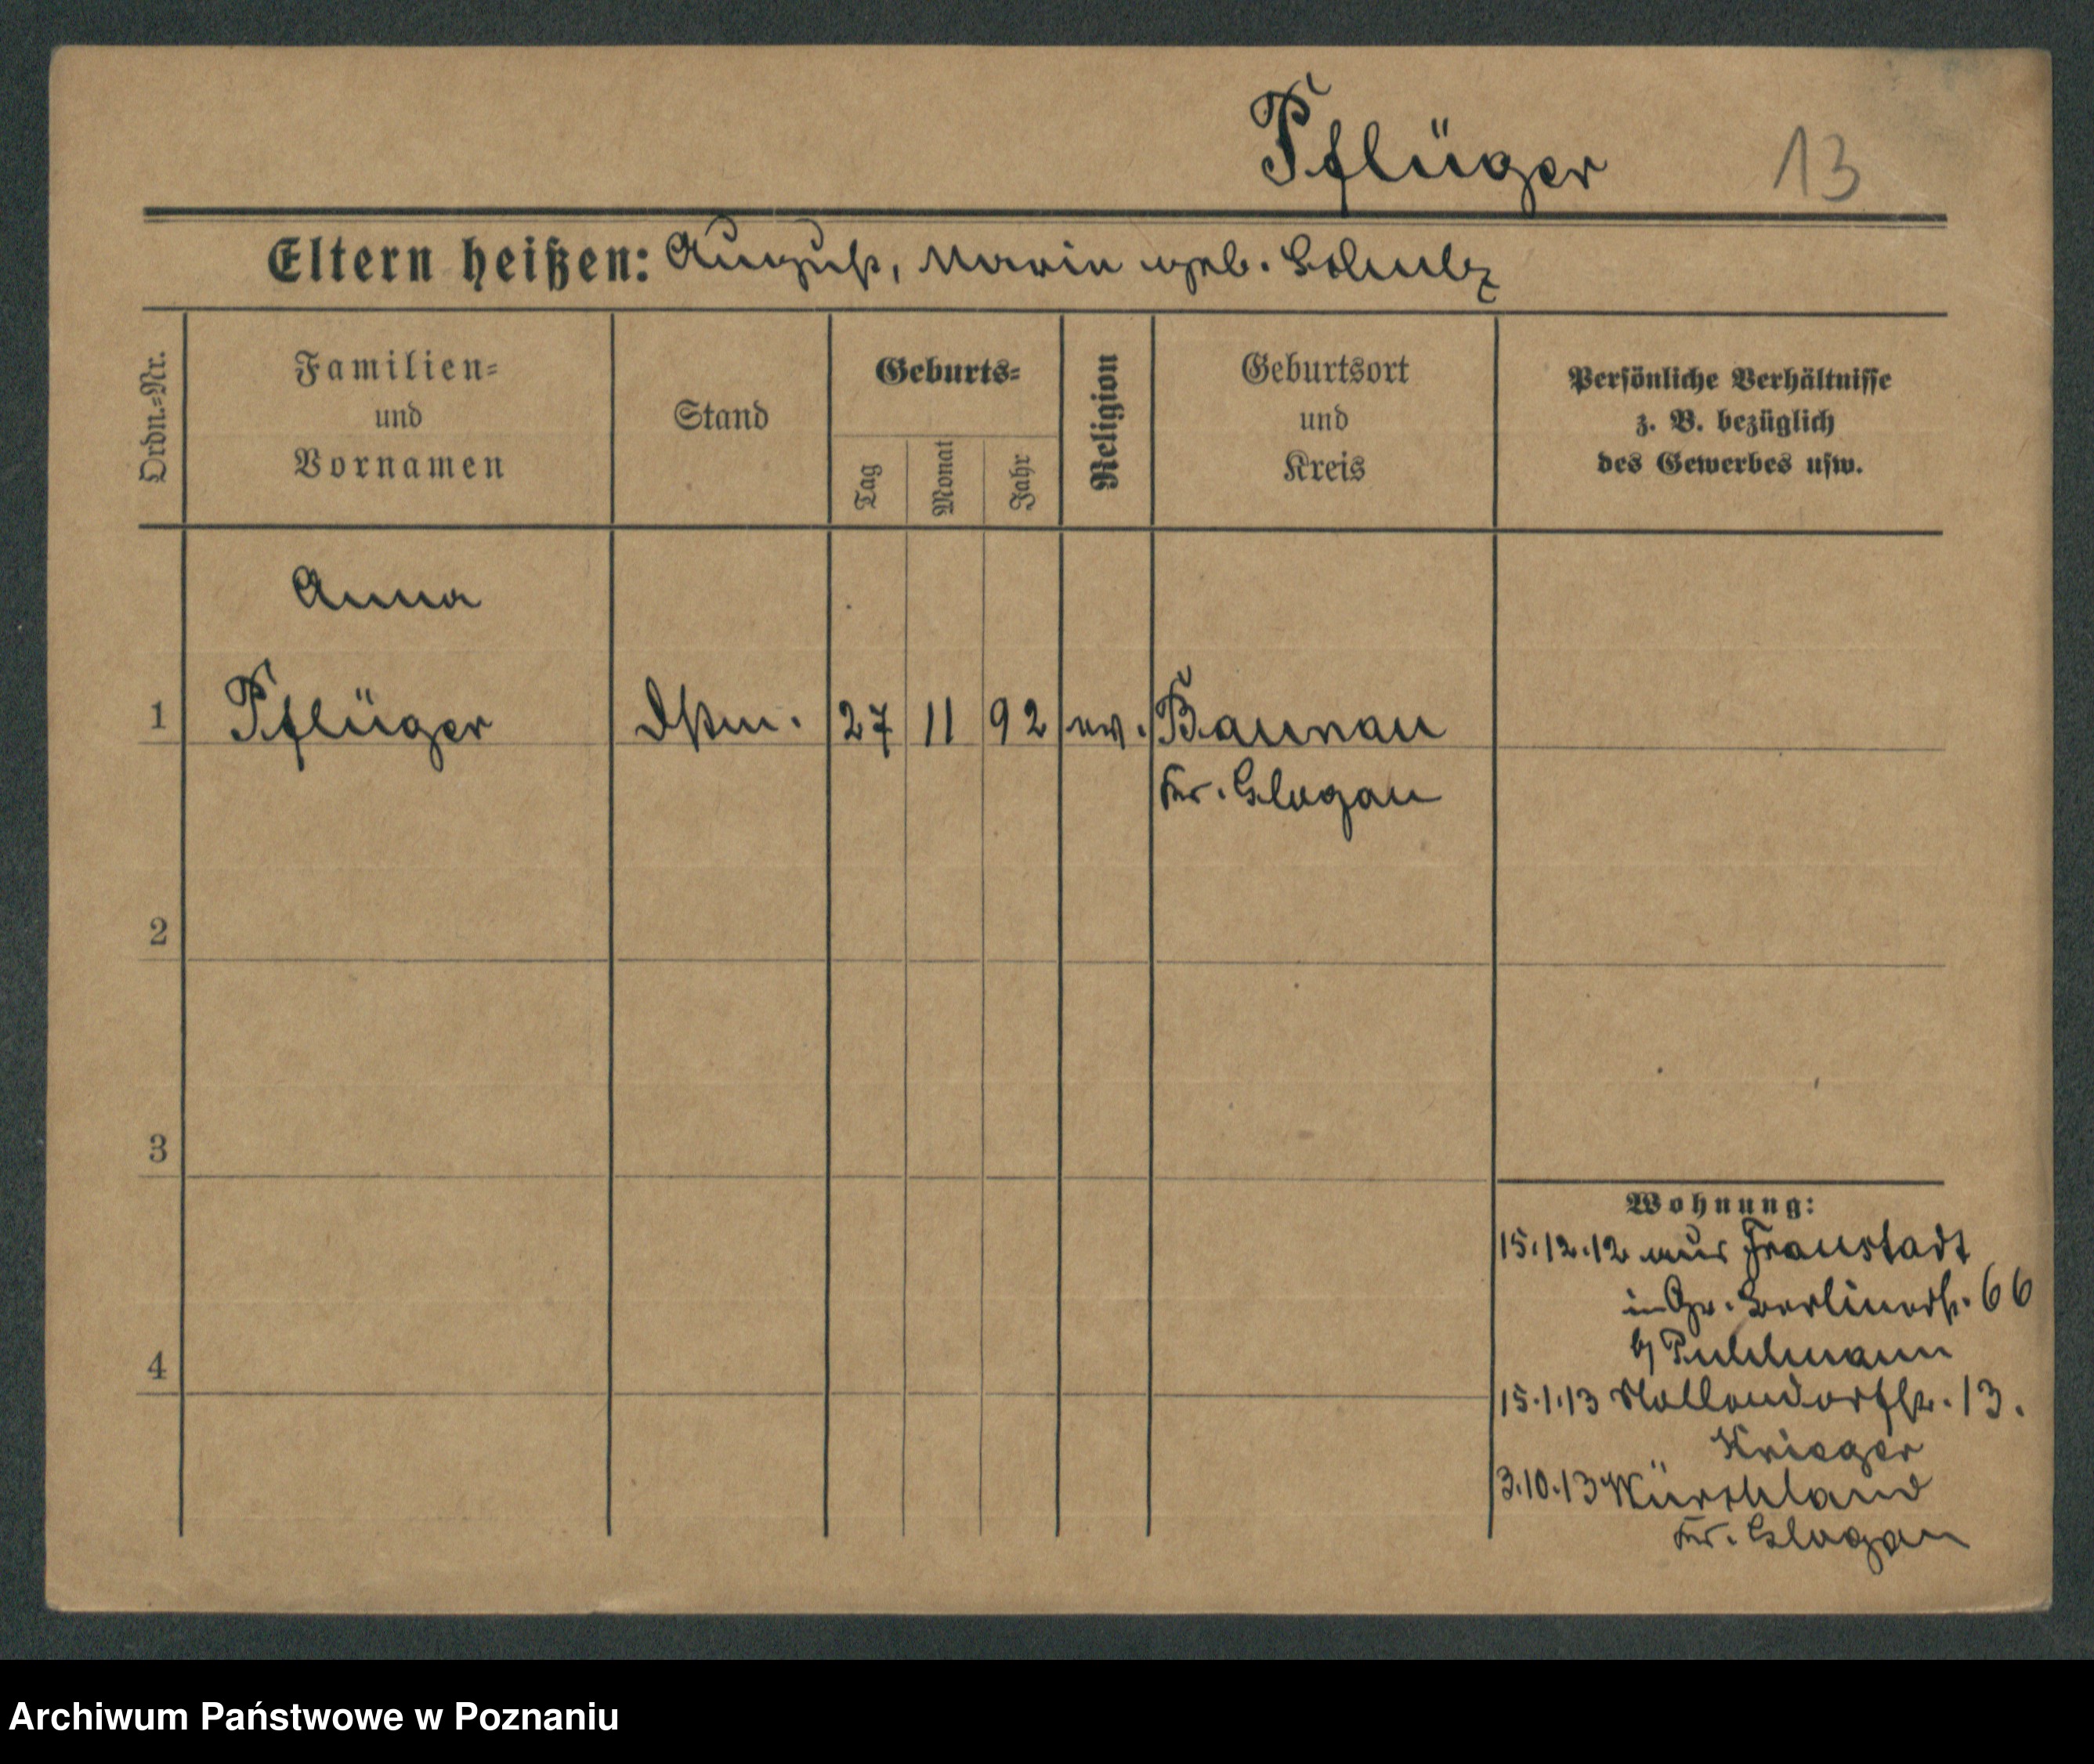 Pflüger 13
Eltern heißen: August, Marie geb. Schulz
Ordn.=Nr.
Familien=
und
Vornamen
Stand
Geburts=
Tag
Monat
Jahr
Religion
Geburtsort
und
Kreis
Persönliche Verhältnisse
z. B. bezüglich
des Gewerbes usw.
Anna
1 Pflüger Dstm. 27 11 92 ev. Baunau
Kr. Glogau
2
3
4
Wohnung:
15.12.12 aus Fraustadt
in Gr. Berlinerstr. 66
b/ Puhlmann
15.1.13 13.
Krieger
3.10.13 Kürschland
Kr. Glogau
Archiwum Państwowe w Poznaniu